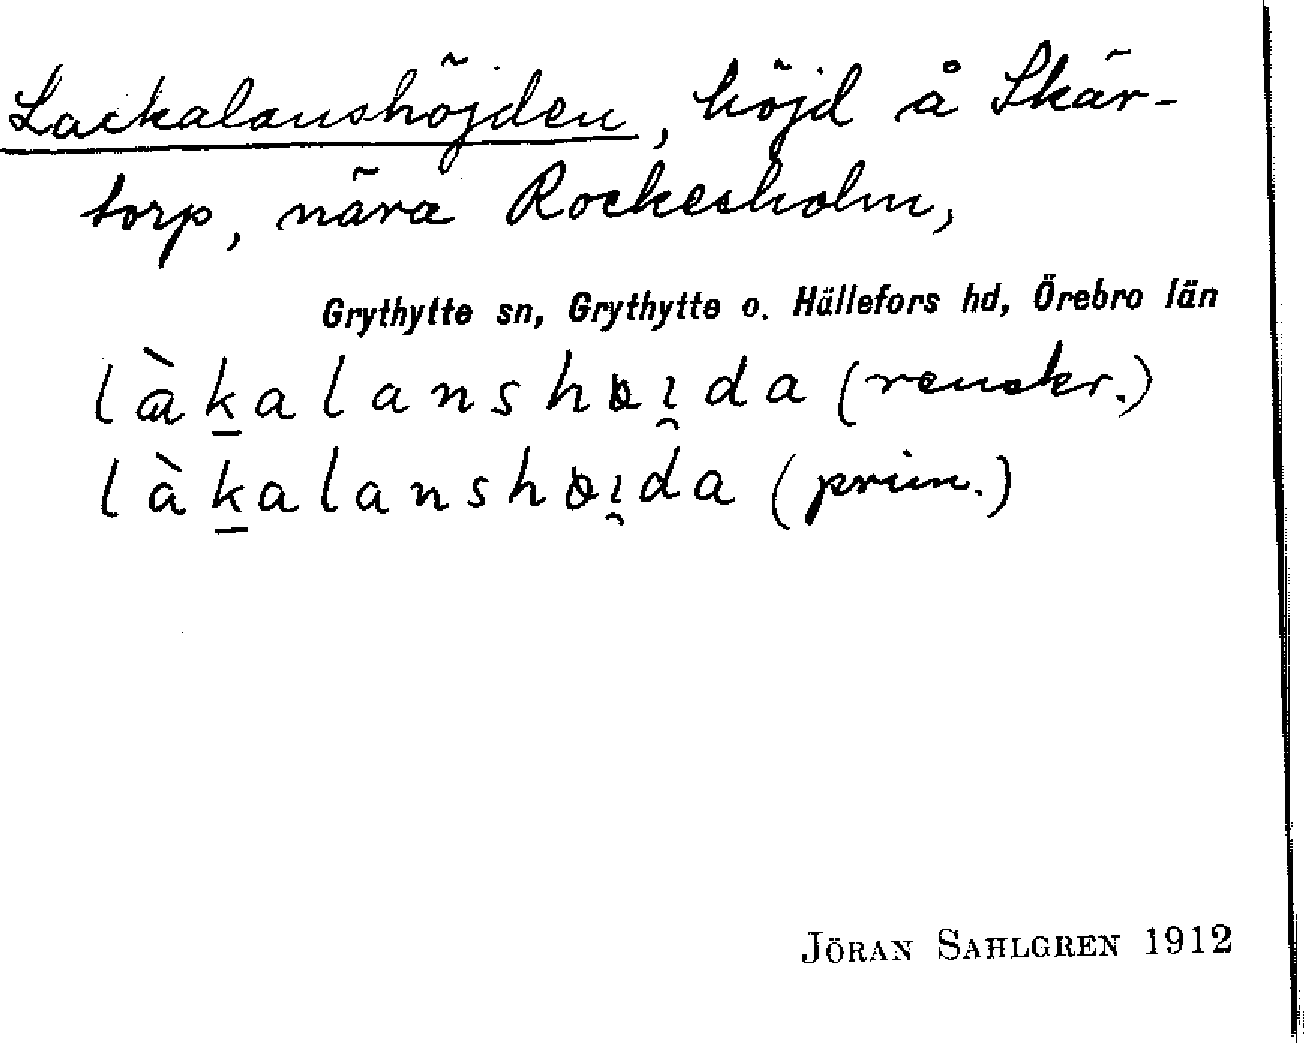 Lackalanshöjden, höjd å Skär-
torp, nära Rockesholm,
Grythytte sn, Grythytte o. Hällefors hd, Örebro län
làk̲alanshöı̯da (renskr.)
làk̲alanshöı̯da (prim.)
JÖRAN SAHLGREN 1912